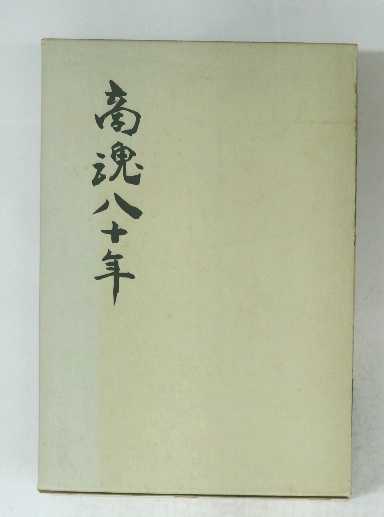 商魂八十年